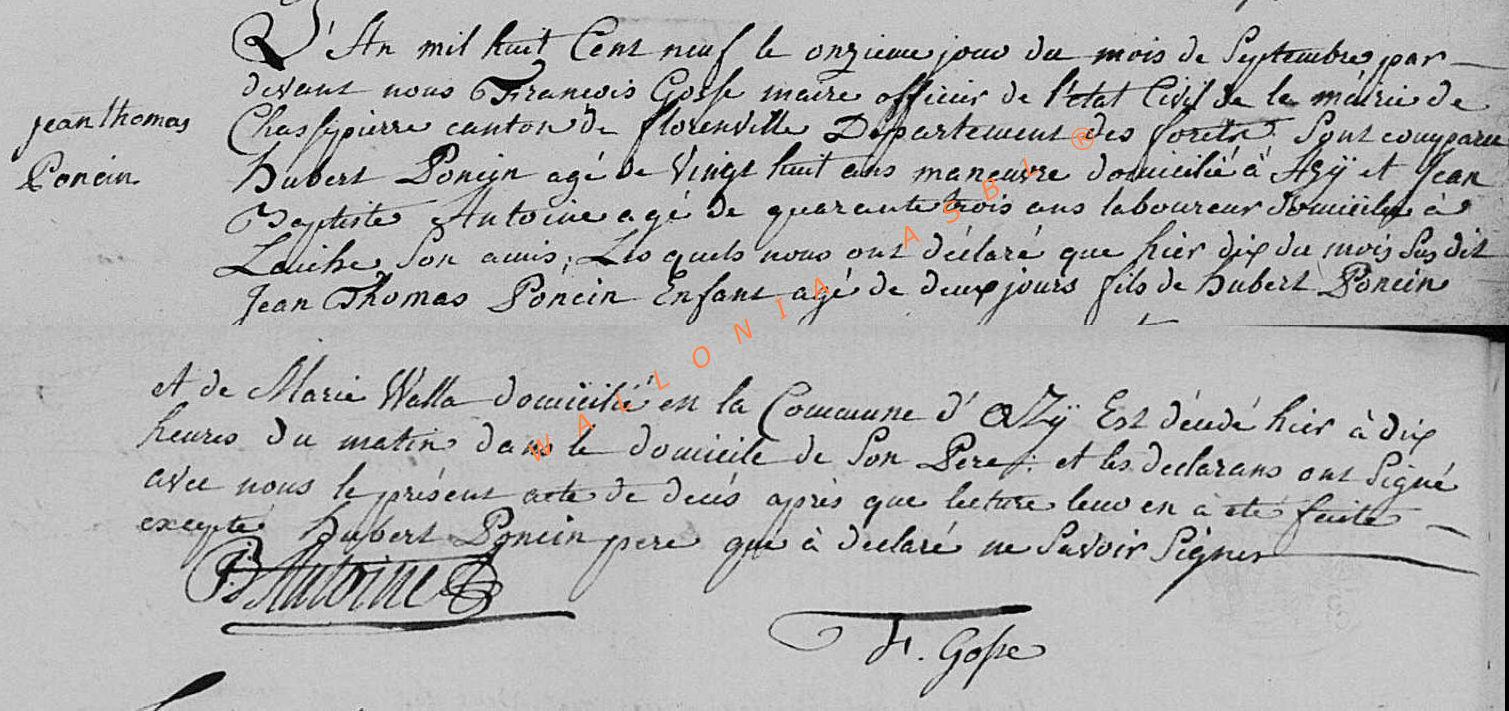 Jean thomas
Poncin
L'An mil huit Cent neuf le onzieme jour du mois de Septembre par
devant nous François Gosse maire officier de l'état Civil de la mairie de
Chassepierre canton de florenville Département des forets. Sont comparu
hubert Poncin agé de Vingt huit ans manœuvre domicilié à Azÿ et Jean
Baptiste Antoine agé de quarante trois ans laboureur domicilie à
Laiche, Son amis, Les quels nous ont déclaré que hier dix du mois Sus dit
Jean Thomas Poncin Enfant agé de deux jours fils de hubert Poncin
et de Marie Walla domicilié en la Commune d'AZÿ Est décédé hier à dix
heures du matin dans le domicile de Son Pere : et les declarans ont Signé
avec nous le présent acte de decés après que lecture leur en à eté faite
excepté hubert Poncin pere qui à declaré ne Savoir Signer
JB Antoine
F. Gosse
WALLONIA ASBL ®